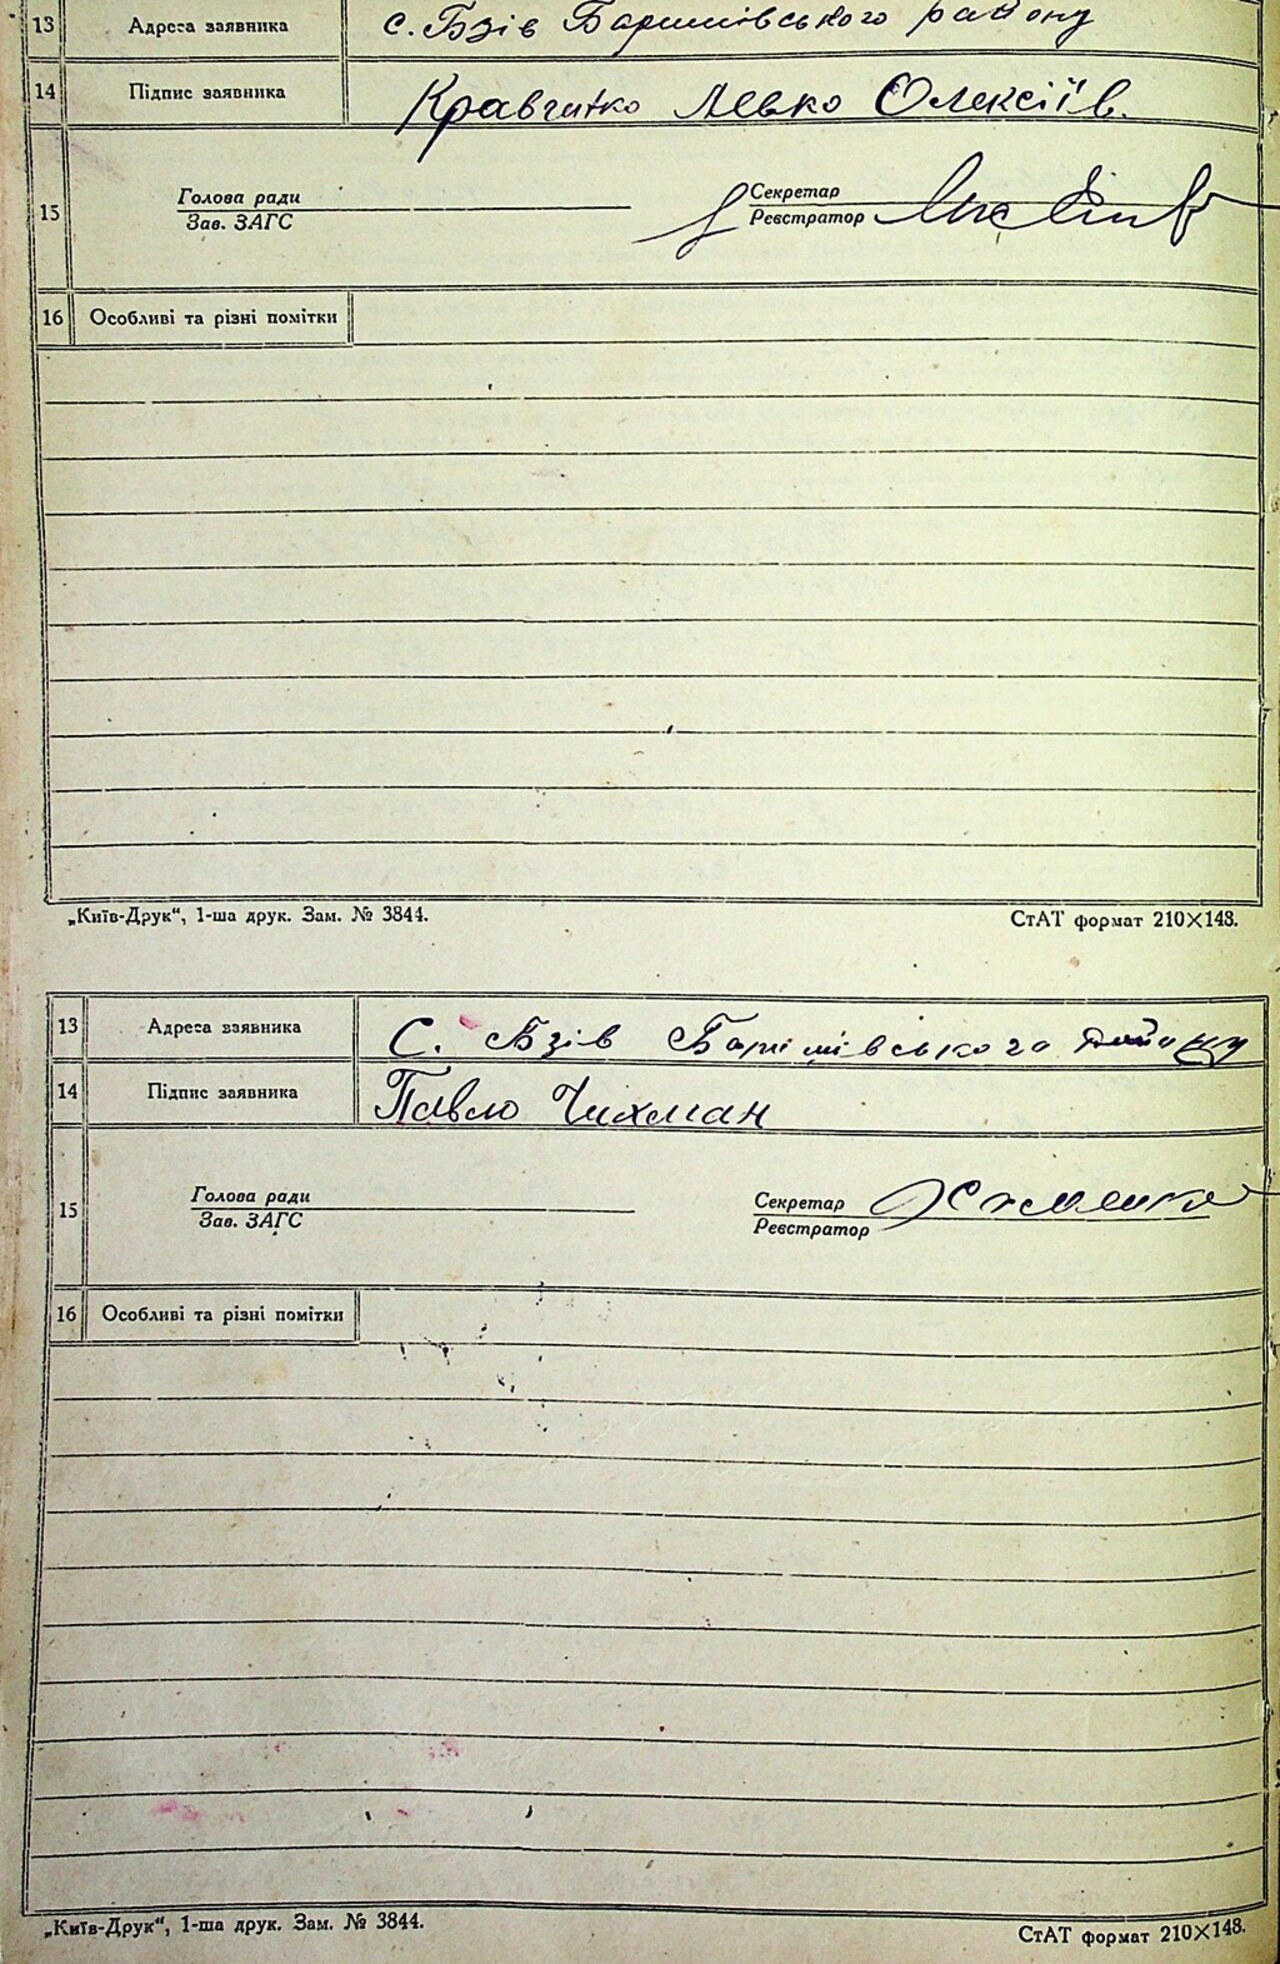 13 Адреса заявника с. Бзів Баришівського району
14 Підпис заявника Кравченко Левко Олексіїв.
15 Голова ради Секретар
Зав. ЗАГС Реєстратор
16 Особливі та різні помітки
„Київ-Друк“, 1-ша друк. Зам. № 3844. СтАТ формат 210×148.
13 Адреса заявника С. Бзів Баришівського району
14 Підпис заявника Павло Чихман
15 Голова ради Секретар
Зав. ЗАГС Реєстратор
16 Особливі та різні помітки
„Київ-Друк“, 1-ша друк. Зам. № 3844. СтАТ формат 210×148.